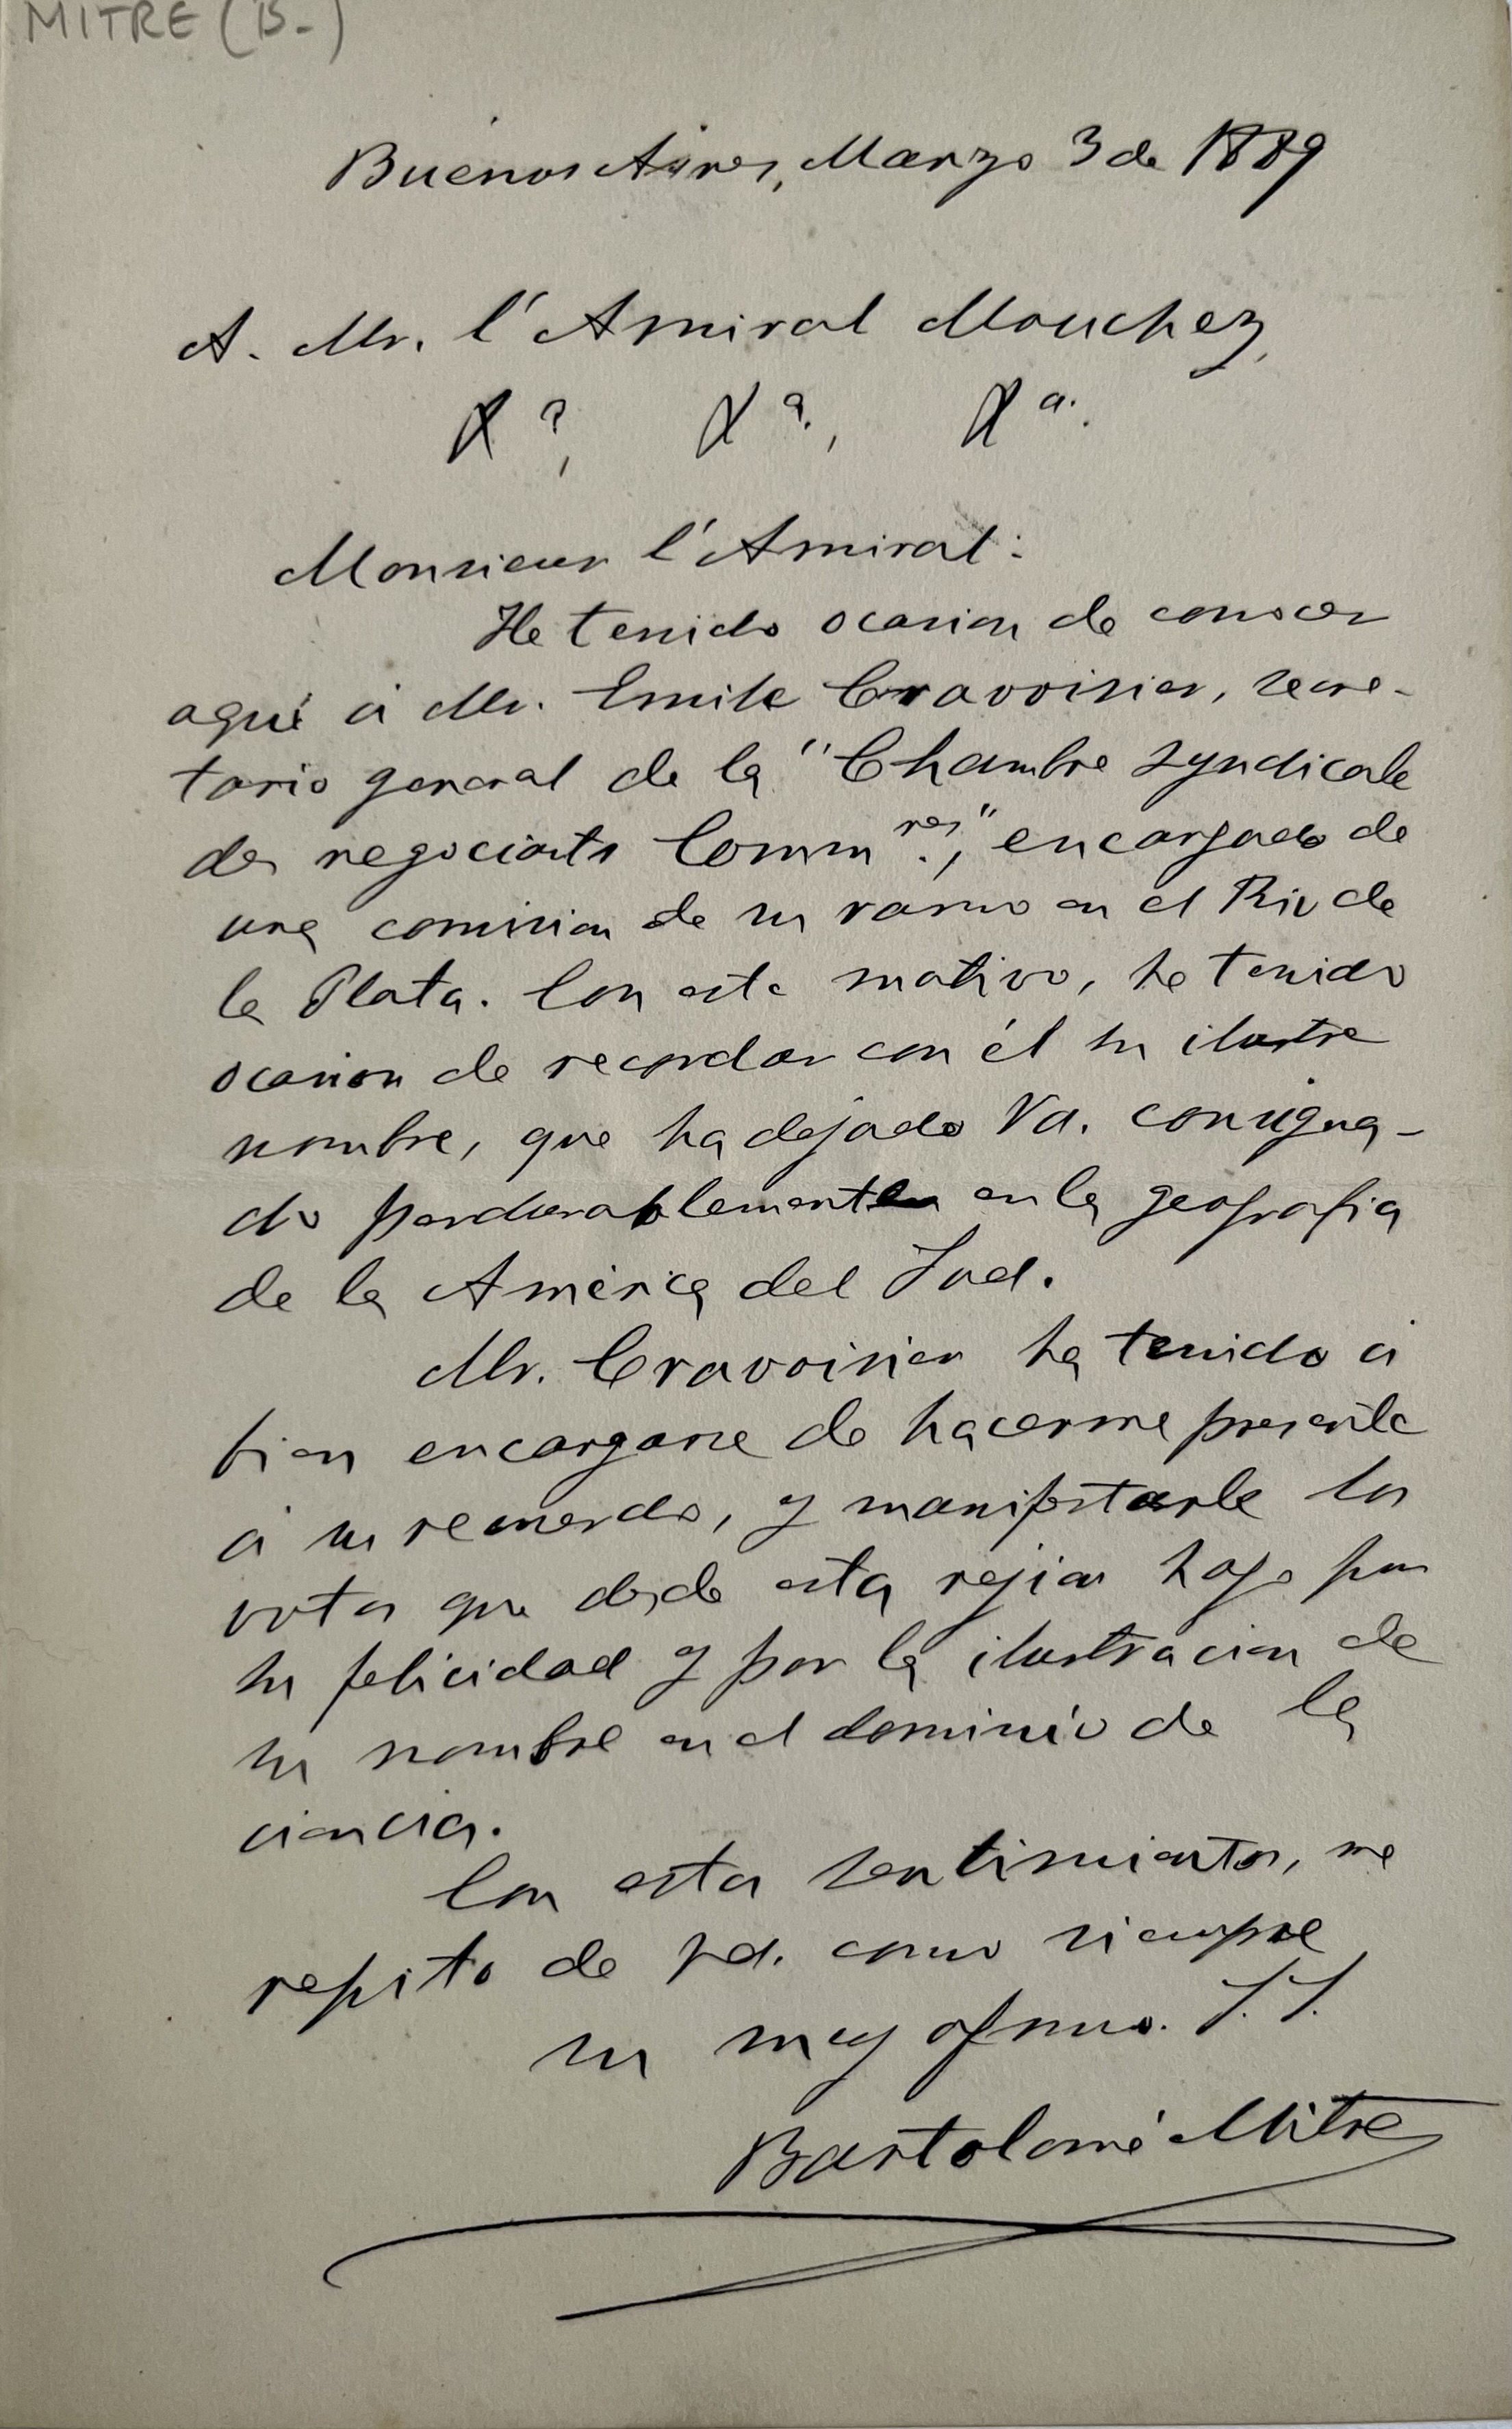 MITRE (B-)
Buenos Aires, Marzo 3 de 1889
A. Mr. l'Amiral Mouchez,
Monsieur l'Amiral:
He tenido ocasion de conocer
aqui á Mr. Emile Cravoisier, secre-
tario general de la "Chambre Syndicale
des negociants Comm.res", encargado de
una comision de su ramo en el Rio de
la Plata. Con este motivo, he tenido
ocasion de recordar con él su ilustre
nombre, que ha dejado Vd. consigna-
do perdurablemente en la geografia
de la América del Sud.
Mr. Cravoisier ha tenido á
bien encargarse de hacerme presente
á su recuerdo, y manifestarle los
votos que desde esta rejion hago por
su felicidad y por la ilustracion de
su nombre en el dominio de la
ciencia.
Con estos sentimientos, me
repito de Vd. como siempre
su muy afmo. S.S.
Bartolomé Mitre